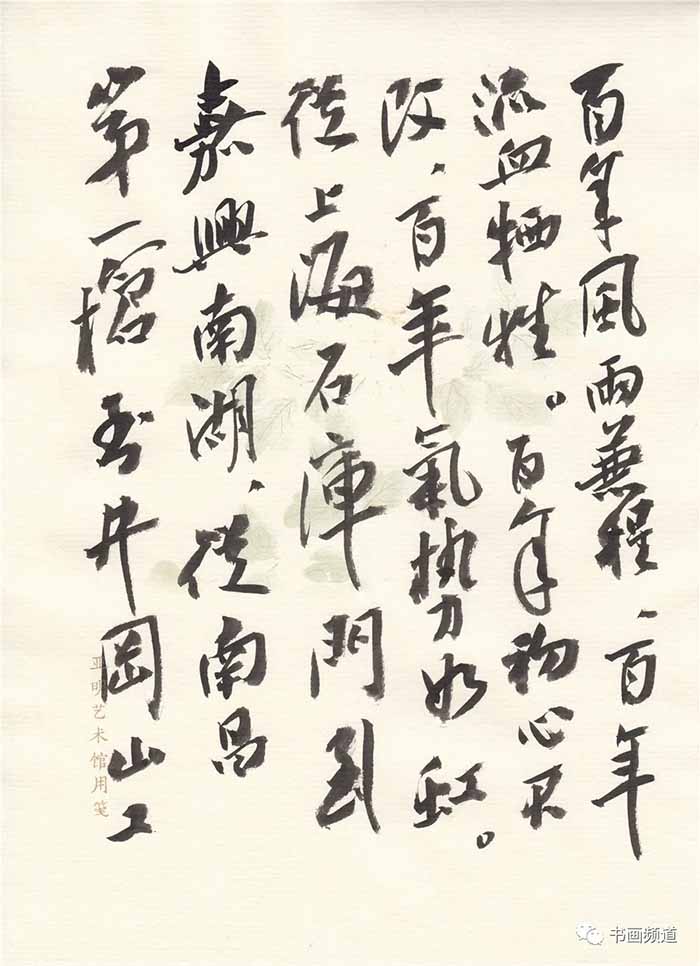 百年風雨蒹程、百年
流血牺牲。百年初心不
改、百年氣势如虹。
從上海石庫門到
嘉興南湖、從南昌
第一槍至井岡山工
亚明艺术馆用笺
书画频道